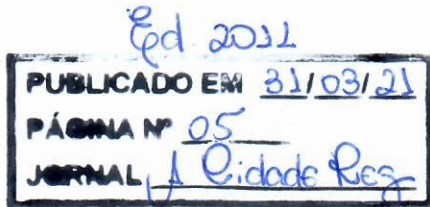 Ed 2011
PUBLICADO EM 31/03/21
PÁGINA Nº 05
JORNAL A Cidade Reg